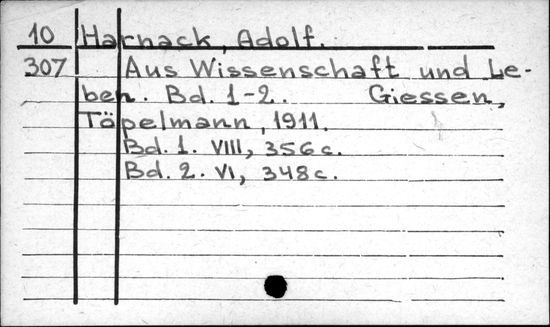 10 Harnack, Adolf.
307 Aus Wissenschaft und Le-
ben. Bd. 1-2. Giessen,
Töpelmann, 1911.
Bd. 1. VIII, 356 c.
Bd. 2. VI, 348 c.